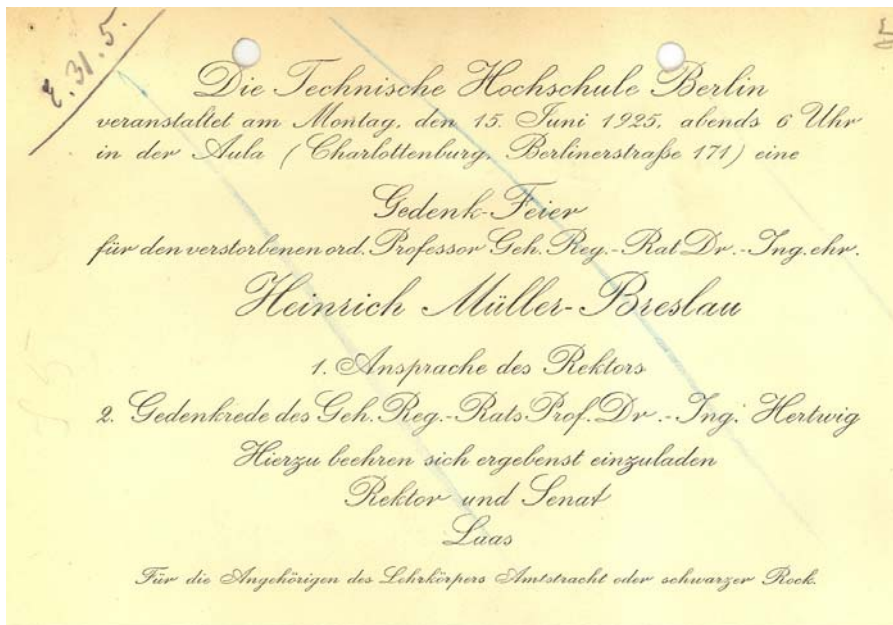 E. 31. 5.
Die Technische Hochschule Berlin
veranstaltet am Montag, den 15. Juni 1925, abends 6 Uhr
in der Aula (Charlottenburg, Berlinerstraße 171) eine
Gedenk-Feier
für den verstorbenen ord. Professor Geh. Reg.-Rat Dr.-Ing. ehr.
Heinrich Müller-Breslau
1. Ansprache des Rektors
2. Gedenkrede des Geh. Reg.-Rats Prof. Dr.-Ing. Hertwig
Hierzu beehren sich ergebenst einzuladen
Rektor und Senat
Laas
Für die Angehörigen des Lehrkörpers Amtstracht oder schwarzer Rock.